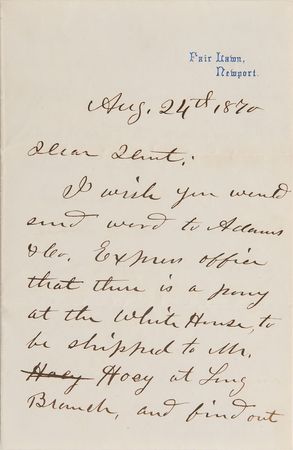 Fair Lawn,
Newport.
Aug. 24th 1870
Dear Dent:
I wish you would
send word to Adams
& Co. Express office
that there is a pony
at the White House, to
be shipped to Mr.
Hoey Hoey at Long
Branch, and find out